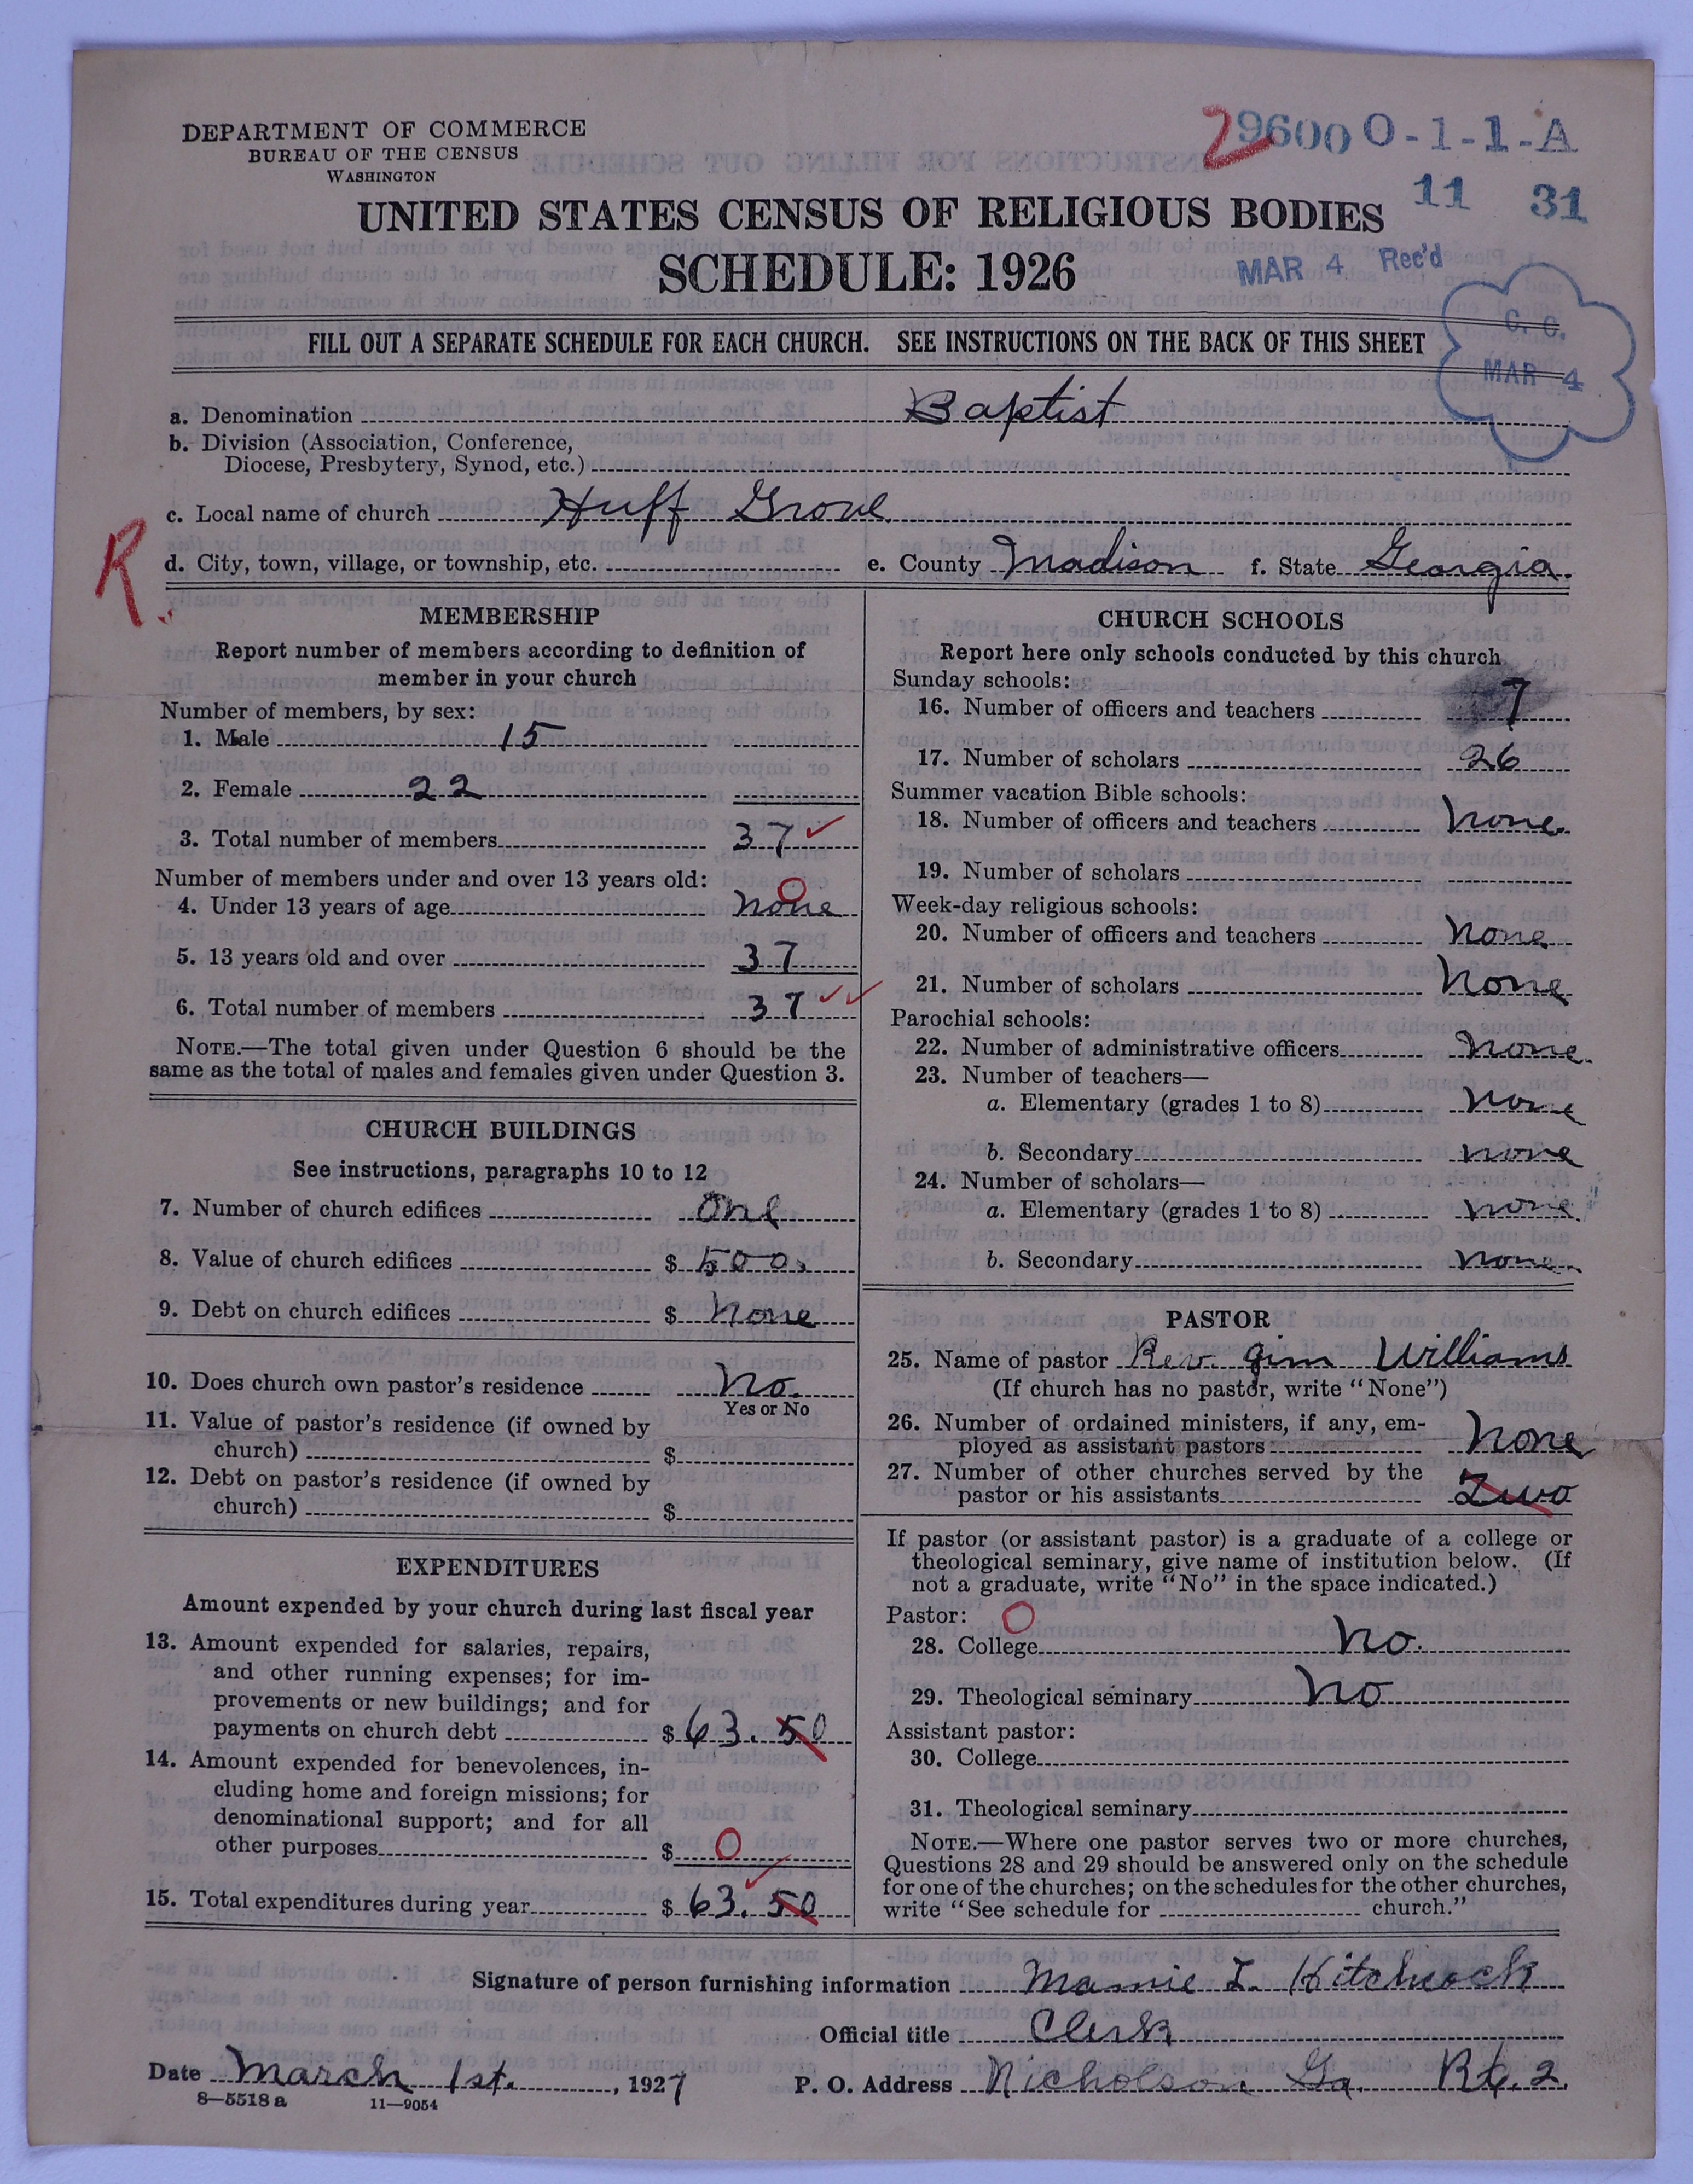 DEPARTMENT OF COMMERCE
BUREAU OF THE CENSUS
WASHINGTON
29600 0-1-1-A
11 31
UNITED STATES CENSUS OF RELIGIOUS BODIES
SCHEDULE: 1926
MAR 4 Rec'd
C. C.
MAR 4
FILL OUT A SEPARATE SCHEDULE FOR EACH CHURCH. SEE INSTRUCTIONS ON THE BACK OF THIS SHEET
a. Denomination Baptist
b. Division (Association, Conference,
Diocese, Presbytery, Synod, etc.)
c. Local name of church Huff Grove
R.
d. City, town, village, or township, etc. e. County Madison f. State Georgia.
MEMBERSHIP
Report number of members according to definition of
member in your church
Number of members, by sex:
1. Male 15
2. Female 22
3. Total number of members 37 ✓
Number of members under and over 13 years old:
4. Under 13 years of age none 0
5. 13 years old and over 37
6. Total number of members 37 ✓✓
NOTE.—The total given under Question 6 should be the
same as the total of males and females given under Question 3.
CHURCH BUILDINGS
See instructions, paragraphs 10 to 12
7. Number of church edifices one
8. Value of church edifices $ 500.
9. Debt on church edifices $ none
10. Does church own pastor's residence No.
Yes or No
11. Value of pastor's residence (if owned by
church) $
12. Debt on pastor's residence (if owned by
church) $
EXPENDITURES
Amount expended by your church during last fiscal year
13. Amount expended for salaries, repairs,
and other running expenses; for im-
provements or new buildings; and for
payments on church debt $ 63.50
14. Amount expended for benevolences, in-
cluding home and foreign missions; for
denominational support; and for all
other purposes $ 0
15. Total expenditures during year $ 63.50 ✓
CHURCH SCHOOLS
Report here only schools conducted by this church
Sunday schools:
16. Number of officers and teachers 7
17. Number of scholars 26
Summer vacation Bible schools:
18. Number of officers and teachers none.
19. Number of scholars
Week-day religious schools:
20. Number of officers and teachers none
21. Number of scholars None
Parochial schools:
22. Number of administrative officers none.
23. Number of teachers—
a. Elementary (grades 1 to 8) none
b. Secondary none
24. Number of scholars—
a. Elementary (grades 1 to 8) none.
b. Secondary none.
PASTOR
25. Name of pastor Rev. Jim Williams
(If church has no pastor, write "None")
26. Number of ordained ministers, if any, em-
ployed as assistant pastors None
27. Number of other churches served by the
pastor or his assistants Two
If pastor (or assistant pastor) is a graduate of a college or
theological seminary, give name of institution below. (If
not a graduate, write "No" in the space indicated.)
Pastor: 0
28. College No.
29. Theological seminary No
Assistant pastor:
30. College
31. Theological seminary
NOTE.—Where one pastor serves two or more churches,
Questions 28 and 29 should be answered only on the schedule
for one of the churches; on the schedules for the other churches,
write "See schedule for church."
Signature of person furnishing information Mamie L. Hitchcock
Official title Clerk
Date March 1st. , 1927 P. O. Address Nicholson Ga. Rt. 2.
8—5518 a 11—9054